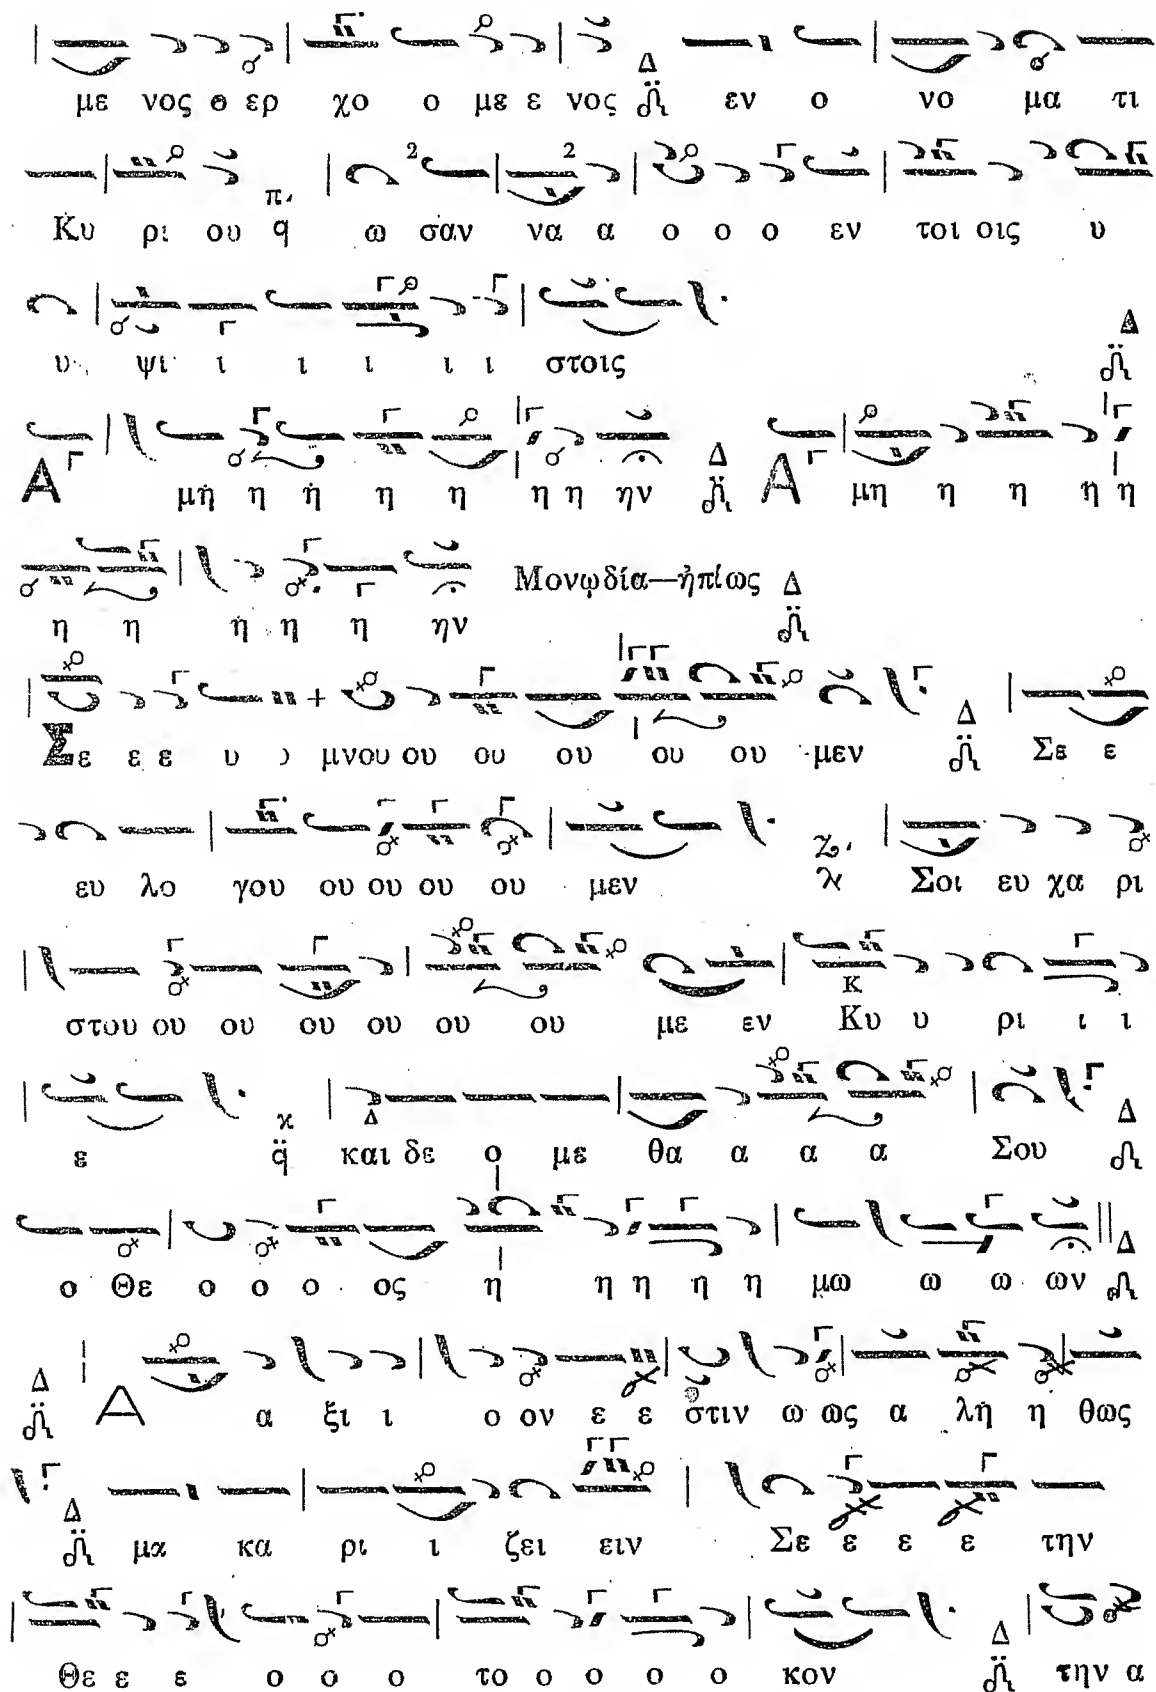 με νος ο ερ χο ο με ε νος Δ εν ο νο μα τι
Κυ ρι ου π q ω σαν να α ο ο ο εν τοι οις υ
υ ψι ι ι ι ι ι στοις Δ
Α μη η η η η η η ην Δ Α μη η η η η
η η η η η ην Μονῳδία—ἠπίως Δ
Σε ε ε υ υ μνου ου ου ου ου ου μεν Δ Σε ε
ευ λο γου ου ου ου ου μεν Ζ Σοι ευ χα ρι
στου ου ου ου ου ου ου με εν Κυ υ ρι ι ι
ε κ q και δε ο με θα α α α Σου Δ
ο Θε ο ο ο ος η η η η η μω ω ω ων Δ
Δ Α α ξι ι ο ον ε ε στιν ω ως α λη η θως
Δ μα κα ρι ι ζει ειν Σε ε ε ε την
Θε ε ε ο ο ο το ο ο ο ο κον Δ την α